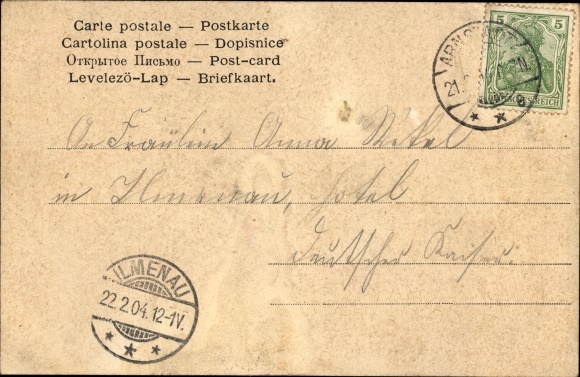 Carte postale — Postkarte
Cartolina postale — Dopisnice
Открытое Письмо — Post-card
Levelező-Lap — Briefkaart.
5 5
ARNSTADT
21.
REICH
An Fräulein Anna
in Ilmenau, Hotel
Deutscher Kaiser.
ILMENAU
22.2.04.12-1V.